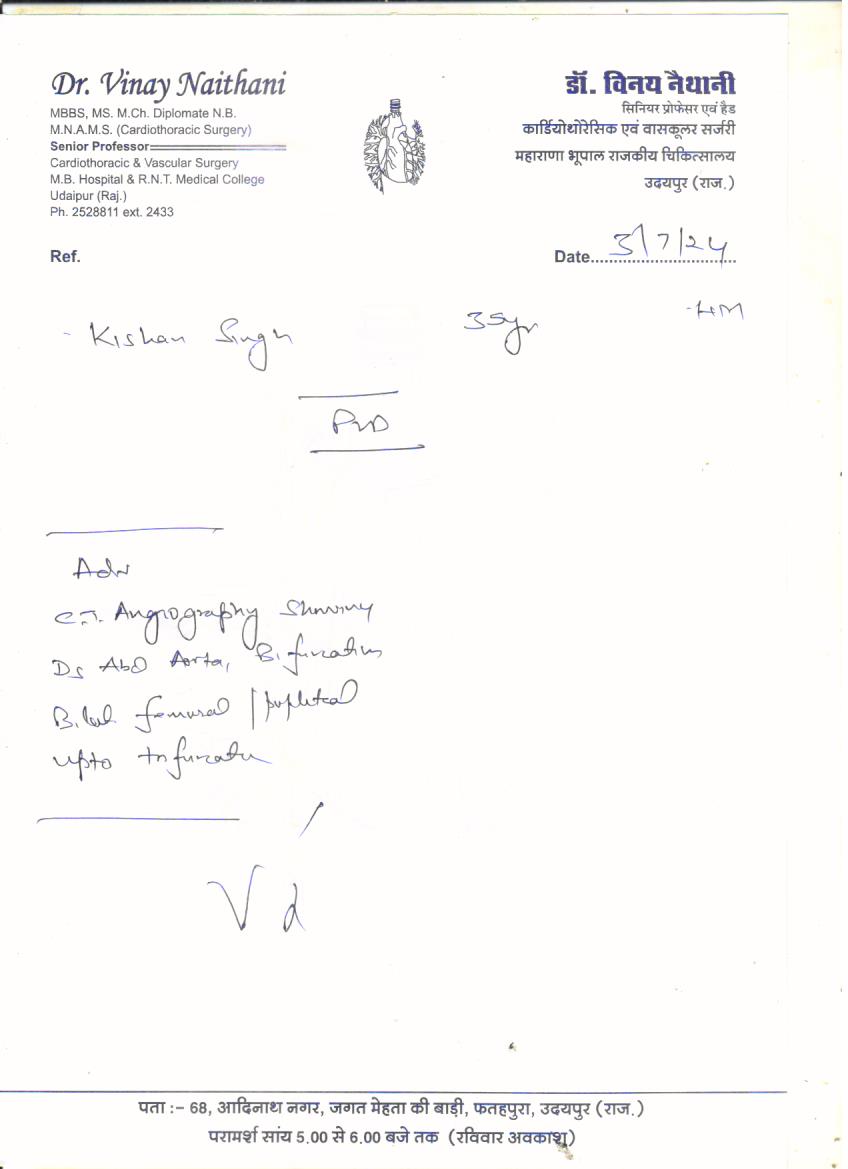 Dr. Vinay Naithani
MBBS, MS. M.Ch. Diplomate N.B.
M.N.A.M.S. (Cardiothoracic Surgery)
Senior Professor
Cardiothoracic & Vascular Surgery
M.B. Hospital & R.N.T. Medical College
Udaipur (Raj.)
Ph. 2528811 ext. 2433
डॉ. विनय नैथानी
सिनियर प्रोफेसर एवं हैड
कार्डियोथोरेसिक एवं वासकूलर सर्जरी
महाराणा भूपाल राजकीय चिकित्सालय
उदयपुर (राज.)
Ref.
Date 3/7/24
Kishan Singh 35yr HM
PVD
Adv
C.T. Angiography Showing
Ds Abd Aorta, Bifurcation
B. lat femoral / popliteal
upto trifurcation
पता :– 68, आदिनाथ नगर, जगत मेहता की बाड़ी, फतहपुरा, उदयपुर (राज.)
परामर्श सांय 5.00 से 6.00 बजे तक (रविवार अवकाश)